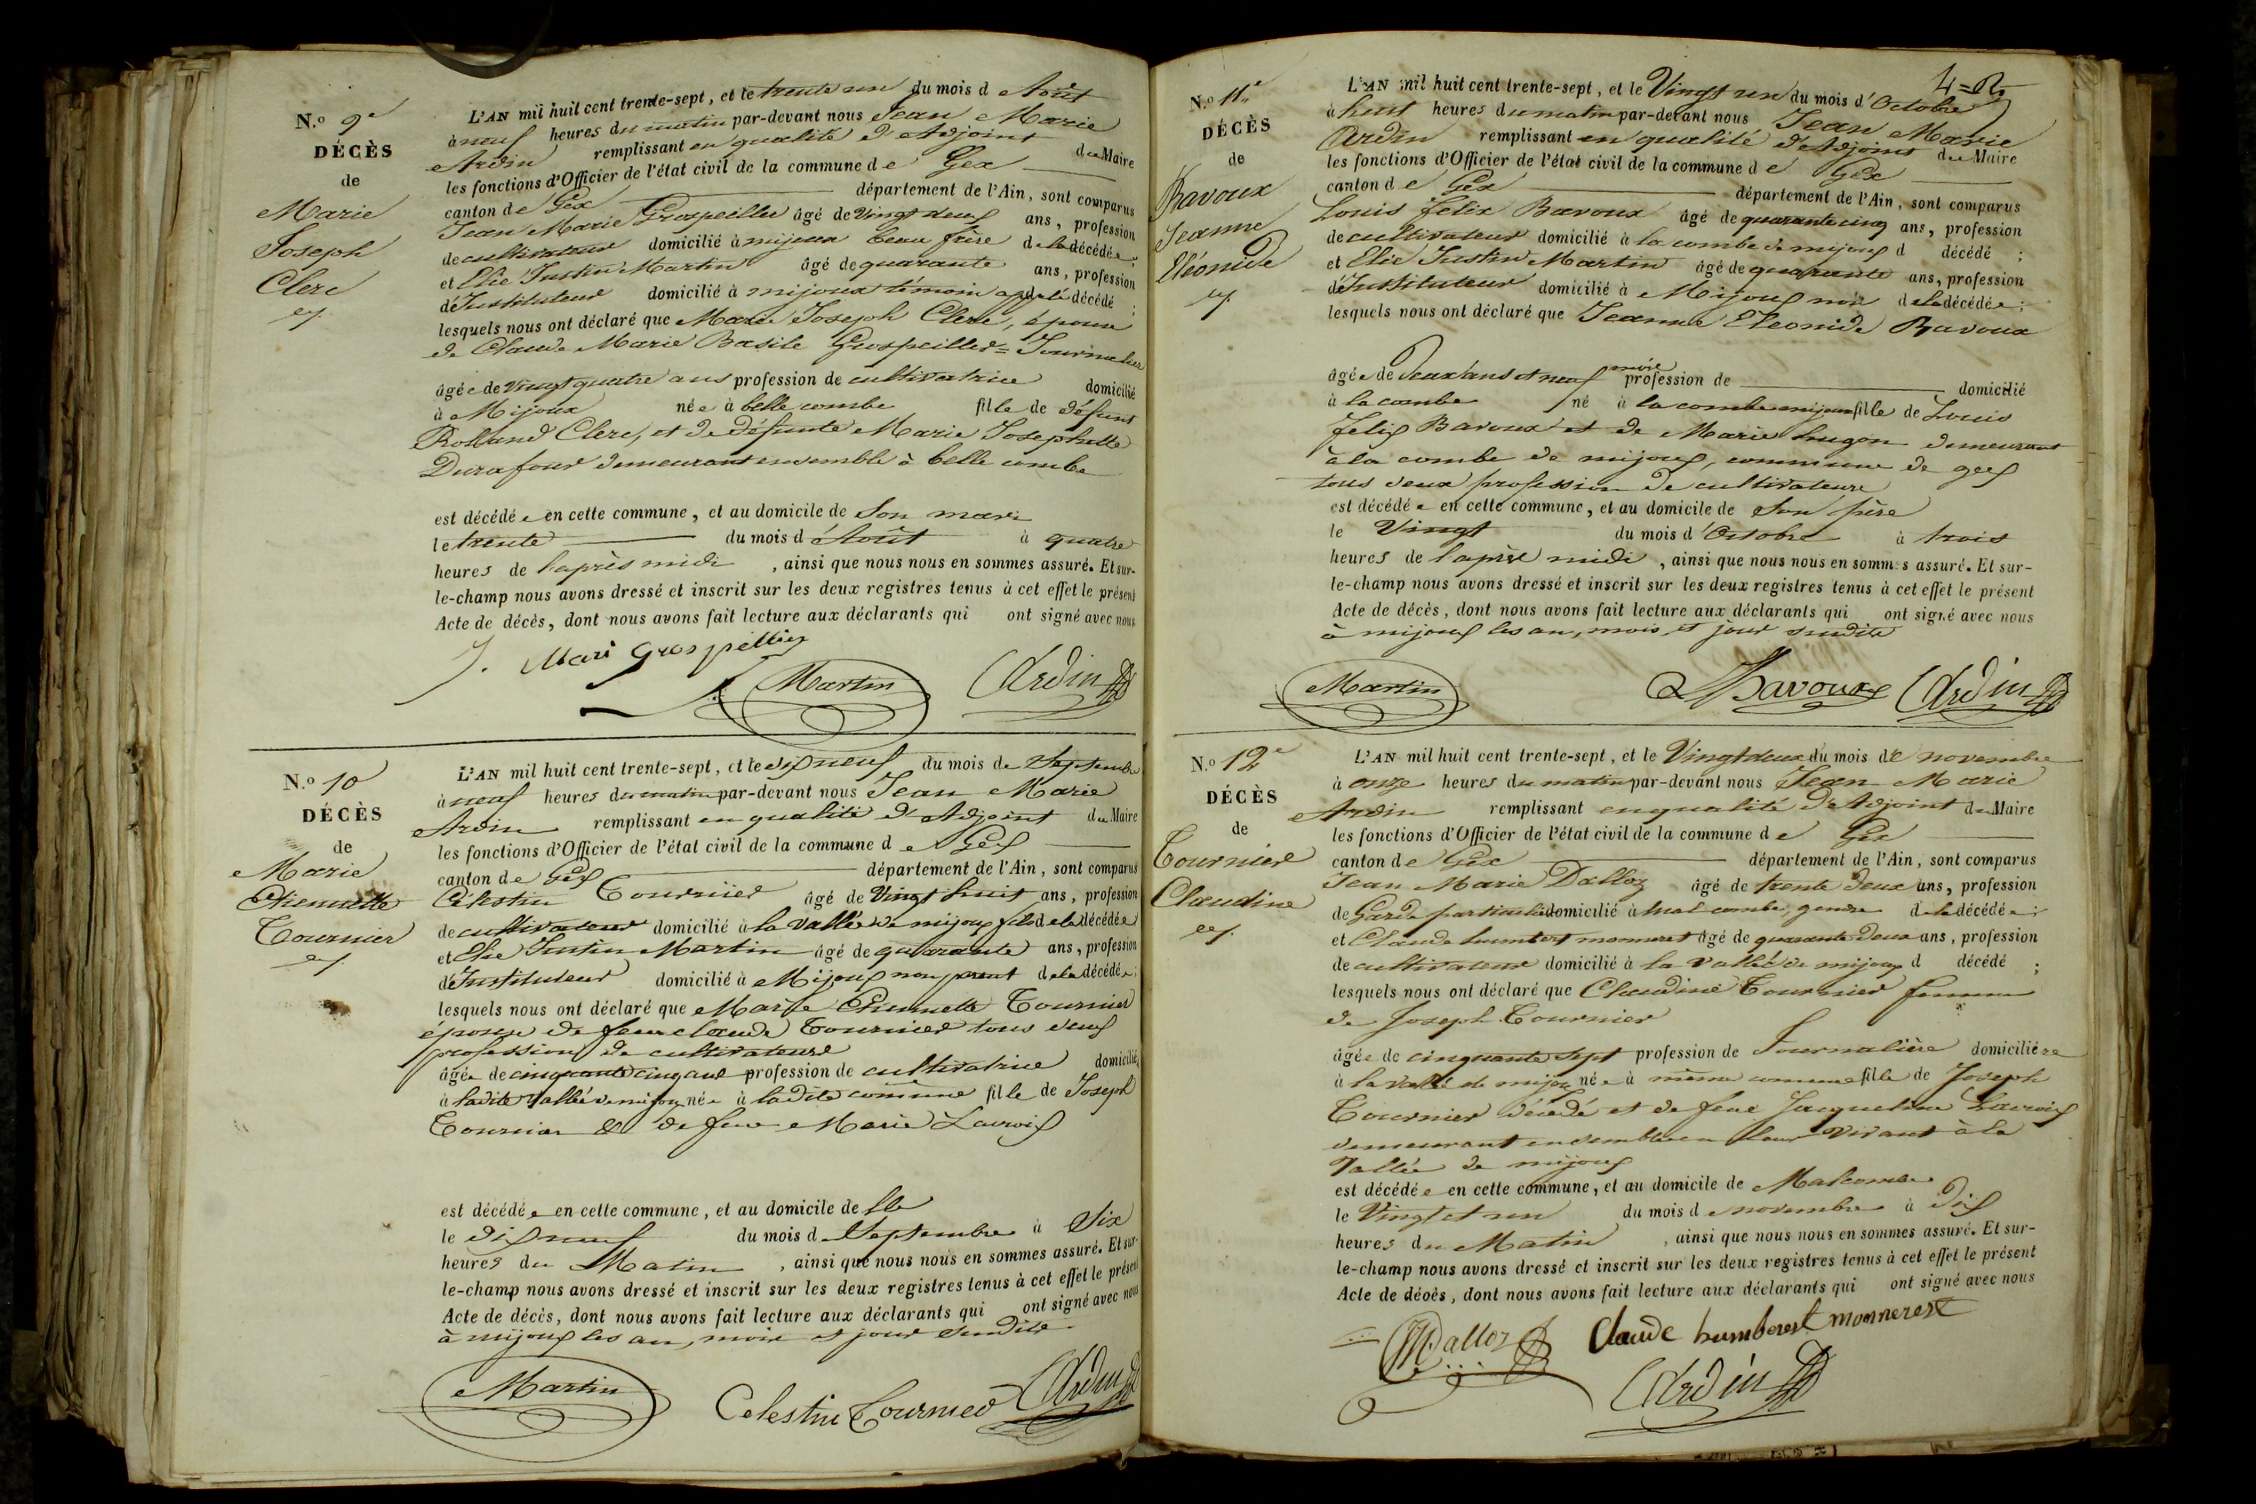 N.º 9e
DÉCÈS
de
Marie
Joseph
Clerc
L'AN mil huit cent trente-sept, et le trente un du mois d Août
à neuf heures du matin par-devant nous Jean Marie
Ardin remplissant en qualité d'Adjoint du Maire
les fonctions d'Officier de l'état civil de la commune de Gex
canton de Gex département de l'Ain, sont comparus
Jean Marie Grospeillier âgé de vingt deux ans, profession
de cultivateur domicilié à mijoux beau frère de la décédée;
et Elie Justin Martin âgé de quarante ans, profession
d'Instituteur domicilié à mijoux témoin de la décédé;
lesquels nous ont déclaré que Marie Joseph Clerc, épouse
de Claude Marie Basile Grospeillier=Tournelier
âgée de vingt quatre ans profession de cultivatrice domicilié
à Mijoux née à belle combe fille de défunt
Rolland Clerc, et de défunte Marie Josephette
Durafour demeurant ensemble à belle combe
est décédée en cette commune, et au domicile de son mari
le trente du mois d'Août à quatre
heures de l'après midi, ainsi que nous nous en sommes assuré. Et sur-
le-champ nous avons dressé et inscrit sur les deux registres tenus à cet effet le présent
Acte de décès, dont nous avons fait lecture aux déclarants qui ont signé avec nous
J. Mari grospellier
Martin Ardin
N.º 10
DÉCÈS
de
Marie
Etiennette
Tournier
L'AN mil huit cent trente-sept, et le dix neuf du mois de Septembre
à neuf heures du matin par-devant nous Jean Marie
Ardin remplissant en qualité d'Adjoint du Maire
les fonctions d'Officier de l'état civil de la commune de Gex
canton de Gex département de l'Ain, sont comparus
Célestin Tournier âgé de vingt huit ans, profession
de cultivateur domicilié à la vallée de mijoux fils de la décédée
et Elie Justin Martin âgé de quarante ans, profession
d'Instituteur domicilié à Mijoux non parent de la décédée;
lesquels nous ont déclaré que Marie Etiennette Tournier
épouse de feu claude Tournier tous deux
profession de cultivateurs
âgée de cinquante cinq ans profession de cultivatrice domicilié
à ladite vallée de mijoux née à ladite commune fille de Joseph
Tournier & de feue Marie Lacroix
est décédée en cette commune, et au domicile de
le dix neuf du mois de Septembre à Six
heures du Matin, ainsi que nous nous en sommes assuré. Et sur-
le-champ nous avons dressé et inscrit sur les deux registres tenus à cet effet le présent
Acte de décès, dont nous avons fait lecture aux déclarants qui ont signé avec nous
à mijoux les an, mois et jour susdits
Martin Celestin Tournier Ardin
N.º 11e
DÉCÈS
de
Bavoux
Jeanne
Eléonide
L'AN mil huit cent trente-sept, et le Vingt un du mois d'Octobre
à huit heures du matin par-devant nous Jean Marie
Ardin remplissant en qualité d'Adjoint du Maire
les fonctions d'Officier de l'état civil de la commune de Gex
canton de Gex département de l'Ain, sont comparus
Louis felix Bavoux âgé de quarante cinq ans, profession
de cultivateur domicilié à la combe de mijoux d décédé;
et Elie Justin Martin âgé de quarante ans, profession
d'Instituteur domicilié à Mijoux non de la décédée;
lesquels nous ont déclaré que Jeanne Eleonide Bavoux
âgée de deux ans et neuf mois profession de domicilié
à la combe né à la combe mijoux fille de Louis
felix Bavoux et de Marie hugon demeurant
à la combe de mijoux, commune de gex
tous deux profession de cultivateurs
est décédée en cette commune, et au domicile de son père
le Vingt du mois d'Octobre à trois
heures de l'après midi, ainsi que nous nous en sommes assuré. Et sur-
le-champ nous avons dressé et inscrit sur les deux registres tenus à cet effet le présent
Acte de décès, dont nous avons fait lecture aux déclarants qui ont signé avec nous
à mijoux les an, mois et jour susdits
Martin Bavoux Ardin
N.º 12e
DÉCÈS
de
Tournier
Claudine
L'AN mil huit cent trente-sept, et le Vingt deux du mois de novembre
à onze heures du matin par-devant nous Jean Marie
Ardin remplissant en qualité d'Adjoint du Maire
les fonctions d'Officier de l'état civil de la commune de Gex
canton de Gex département de l'Ain, sont comparus
Jean Marie Dalloz âgé de trente deux ans, profession
de Garde particulier domicilié à mal combe, gendre de la décédée;
et Claude humbert monneret âgé de quarante deux ans, profession
de cultivateur domicilié à la vallée de mijoux d décédé;
lesquels nous ont déclaré que Claudine Tournier femme
de Joseph Tournier
âgée de cinquante sept profession de Journalière domiciliée
à la vallée de mijoux née à même commune fille de Joseph
Tournier décédé et de feue Jacqueline Lacroix
demeurant ensemble en leur vivant à la
Vallée de mijoux
est décédée en cette commune, et au domicile de Malcombe
le Vingt et un du mois de novembre à dix
heures du Matin, ainsi que nous nous en sommes assuré. Et sur-
le-champ nous avons dressé et inscrit sur les deux registres tenus à cet effet le présent
Acte de décès, dont nous avons fait lecture aux déclarants qui ont signé avec nous
Dalloz Claude humberest monnerest
Ardin